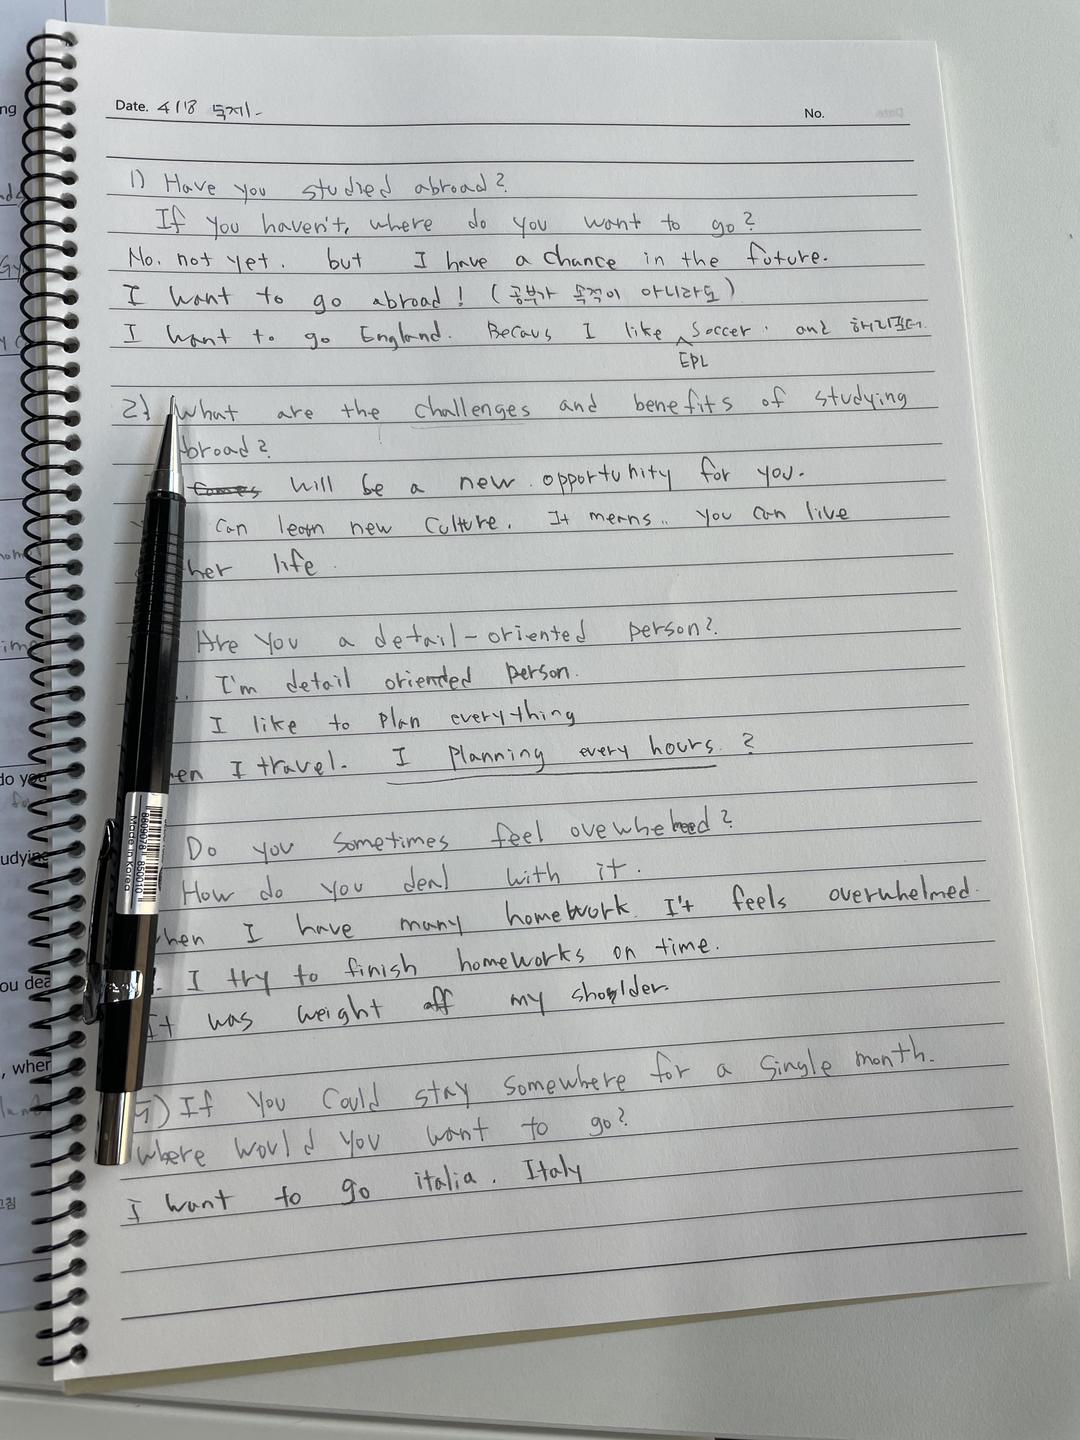 Date. 4/18 독제1-
No.
1) Have you studied abroad?
If you haven't, where do you want to go?
No. not yet. but I have a chance in the future.
I want to go abroad! (공부가 목적이 아니라도)
I want to go England. Becaus I like EPL Soccer. and 해리포터.
2) What are the challenges and benefits of studying
broad?
will be a new opportunity for you.
can learn new culture. It means.. you can live
her life.
Are you a detail-oriented person?
I'm detail oriented person.
I like to plan everything
en I travel. I planning every hours. ?
Do you sometimes feel
How do you deal with it.
hen I have many homework I't feels overwhelmed.
I try to finish homeworks on time.
It was weight off my sholder.
5) If you could stay somewhere for a single month.
where would you want to go?
I want to go italia. Italy
8809078 850010
Made in Korea
ng
do you
udying
ou dea
, wher